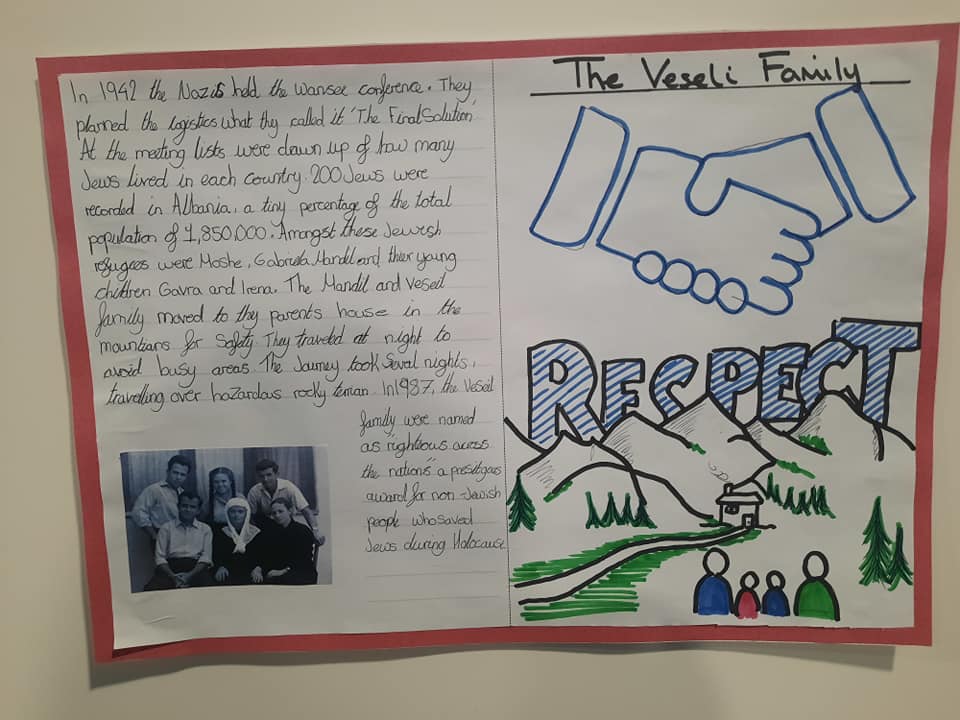 In 1942 the Nazis held the Wansee conference. They
planned the logistics what thy called it 'The Final Solution'
At the meeting lists were drawn up of how many
Jews lived in each country. 200 Jews were
recorded in Albania, a tiny percentage of the total
population of 1,850,000. Amongst these Jewish
refugees were Moshe, Gabriela Mandil and thier young
children Gavra and Irena. The Mandil and Veseli
family moved to thy parents house in the
mountains for safety. They traveled at night to
avoid busy areas. The Journey took Seval nights,
travelling over hazardous rocky terrian. In 1987, the Veseli
family were named
as "righteous across
the nations" a prestigous
award for non-Jewish
people who saved
Jews during Holocause
The Veseli Family
RESPECT